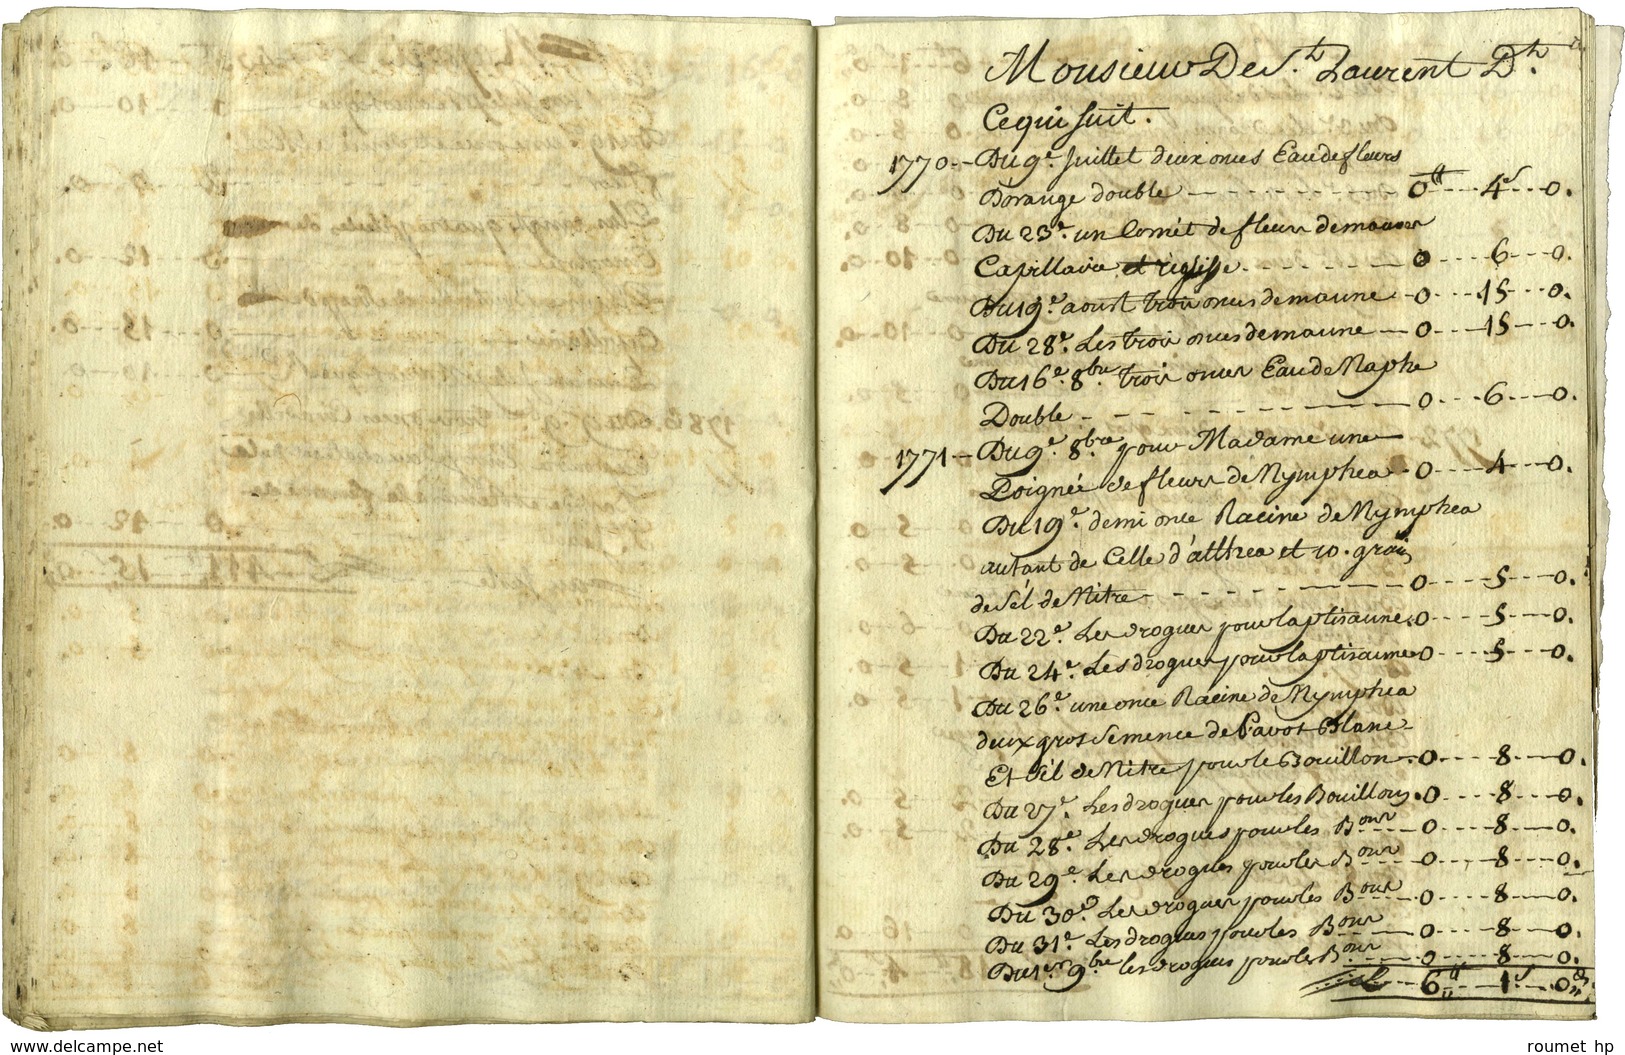 Monsieur De St. Laurent Dt.
Ce qui suit.
1770.- Du 9e. Juillet deux onces Eau de fleurs
D'orange double 0 ₶ 4 s 0.
Du 23e. un Cornét de fleurs de mauves
Capillaire et réglisse 0 6 0.
Du 19e. aoust trois onces de manne 0 15 0.
Du 28e. Les trois onces de manne 0 15 0.
Du 16e. 8bre. trois onces Eau de Naphe
Double 0 6 0.
1771 - Du 9e. 8bre pour Madame une
Poignée de fleurs de Nymphea 0 4 0.
Du 19e. demi once Racine de Nymphea
autant de Celle d'althea et 10. grains
de sél de Nitre 0 5 0.
Du 22e. Les drogues pour la ptisanne 0 5 0.
Du 24e. Les drogues pour la ptisanne 0 5 0.
Du 26e. une once Racine de Nymphea
deux gros semence de Pavot Blanc
Et sél de Nitre pour le Bouillon 0 8 0.
Du 27e. Les drogues pour les Bouillons 0 8 0.
Du 28e. Les drogues pour les Bons 0 8 0.
Du 29e. Les drogues pour les Bons 0 8 0.
Du 30e. Les drogues pour les Bons 0 8 0.
Du 31e. Les drogues pour les Bons 0 8 0.
Du 1er 9bre les drogues pour les Bons 0 8 0.
6 ₶ 1 s 0 d
www.delcampe.net
roumet hp